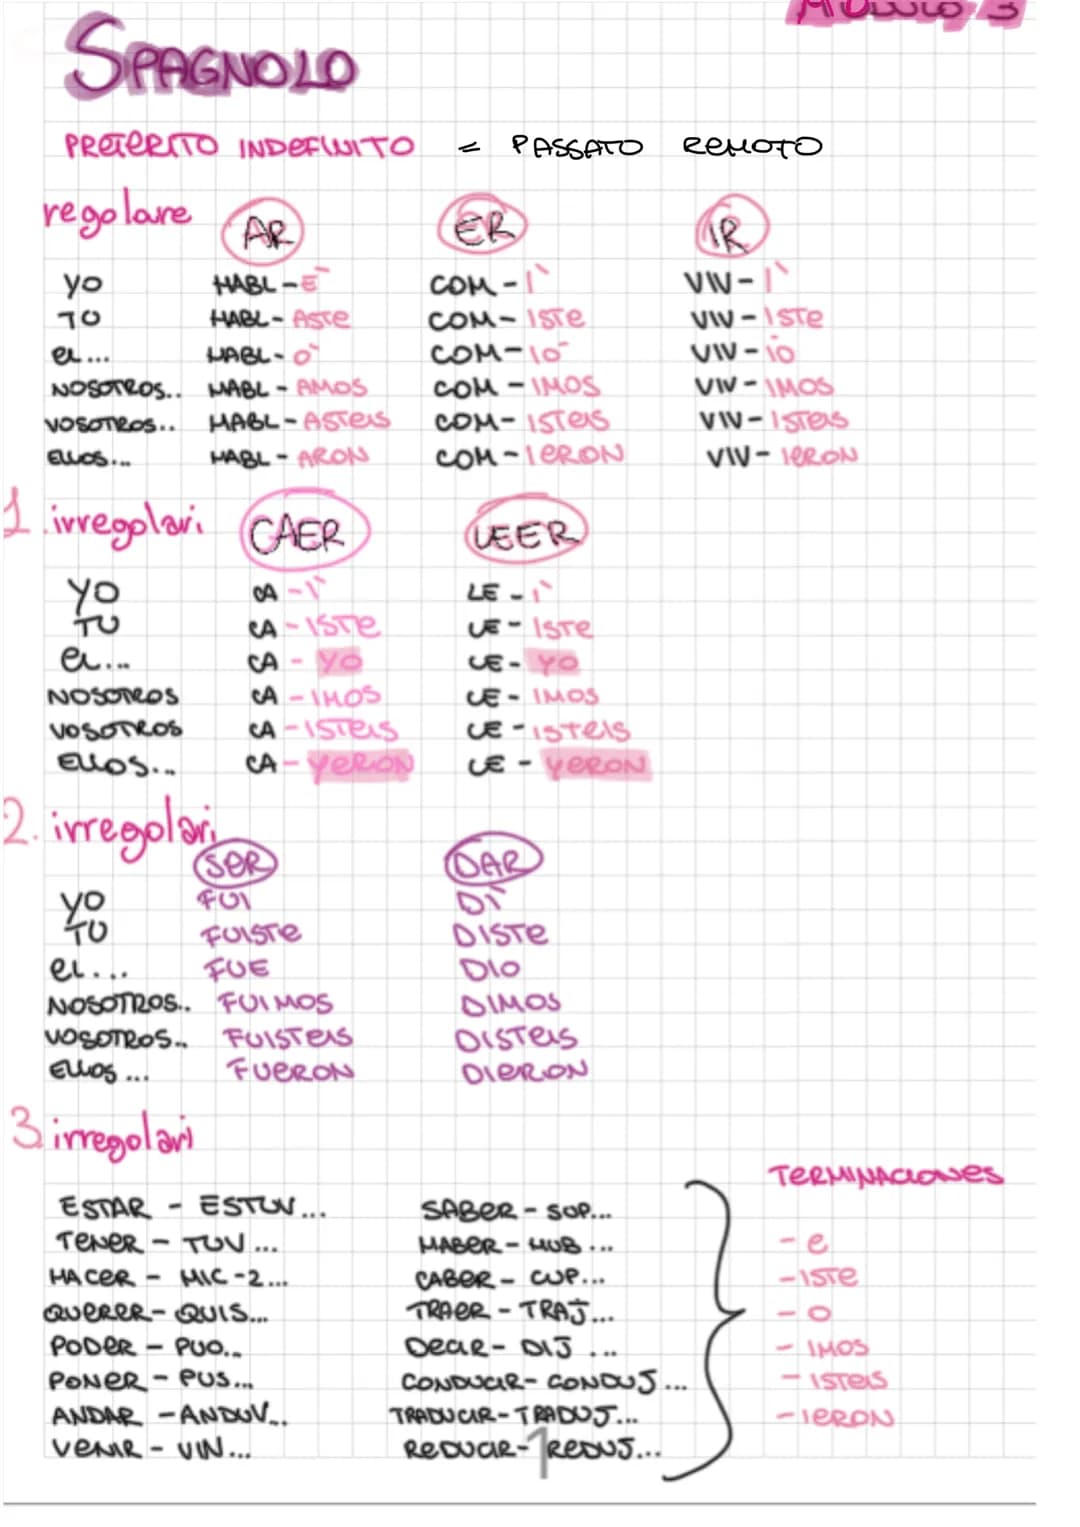 MODULO 3
SPAGNOLO
PRETERITO INDEFINITO = PASSATO REMOTO
regolare AR ER IR
YO HABL-È COM-Ì VIV-Ì
TU HABL-ASTE COM-ISTE VIV-ISTE
EL... HABL-Ò COM-IÒ VIV-IÒ
NOSOTROS.. HABL-AMOS COM-IMOS VIV-IMOS
VOSOTROS.. HABL-ASTEIS COM-ISTEIS VIV-ISTEIS
ELLOS... HABL-ARON COM-IERON VIV-IERON
1. irregolari CAER LEER
YO CA-Ì LE-Ì
TU CA-ISTE LE-ISTE
EL... CA-YO LE-YO
NOSOTROS CA-IMOS LE-IMOS
VOSOTROS CA-ISTEIS LE-ISTEIS
ELLOS... CA-YERON LE-YERON
2. irregolari SER DAR
YO FUI DÌ
TU FUISTE DISTE
EL... FUE DIO
NOSOTROS.. FUIMOS DIMOS
VOSOTROS.. FUISTEIS DISTEIS
ELLOS... FUERON DIERON
3 irregolari
TERMINACIONES
ESTAR - ESTUV... SABER - SUP...
TENER - TUV... HABER - HUB... - E
HACER - HIC-Z... CABER - CUP... - ISTE
QUERER - QUIS... TRAER - TRAJ... - O
PODER - PUD... DECIR - DIJ... - IMOS
PONER - PUS... CONDUCIR - CONDUJ... - ISTEIS
ANDAR - ANDUV... TRADUCIR - TRADUJ... - IERON
VENIR - VIN... REDUCIR - REDUJ...
1